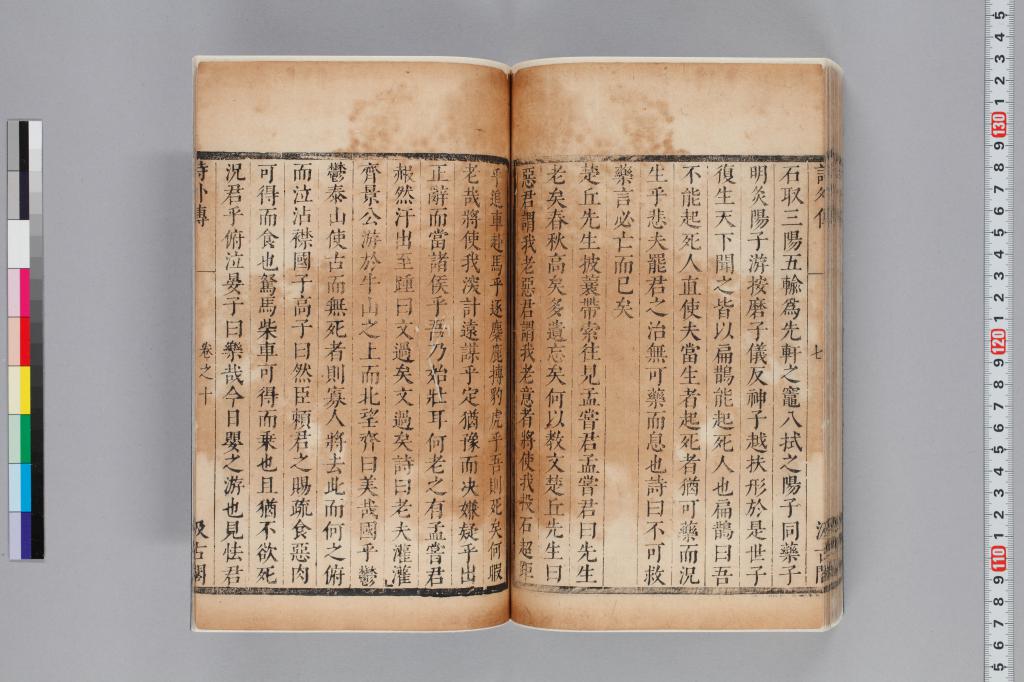 詩外傳
七
汲古閣
石取三陽五輸爲先軒之竈八拭之陽子同藥子
明灸陽子游按磨子儀反神子越扶形於是世子
復生天下聞之皆以扁鵲能起死人也扁鵲曰吾
不能起死人直使夫當生者起死者猶可藥而況
生乎悲夫罷君之治無可藥而息也詩曰不可救
藥言必亡而已矣
楚丘先生披蓑帶索往見孟嘗君孟嘗君曰先生
老矣春秋高矣多遺忘矣何以教文楚丘先生曰
惡君謂我老惡君謂我老意者將使我投石超距
乎追車赴馬乎逐麋鹿搏豹虎乎吾則死矣何暇
老哉將使我深計遠謀乎定猶豫而决嫌疑乎出
正辭而當諸侯乎吾乃始壯耳何老之有孟嘗君
赧然汗出至踵曰文過矣文過矣詩曰老夫灌灌
齊景公游於牛山之上而北望齊曰美哉國乎鬱
鬱泰山使古而無死者則寡人將去此而何之俯
而泣沾襟國子高子曰然臣賴君之賜疏食惡肉
可得而食也駑馬柴車可得而乘也且猶不欲死
況君乎俯泣晏子曰樂哉今日嬰之游也見怯君
詩外傳
卷之十
汲古閣
130
120
110